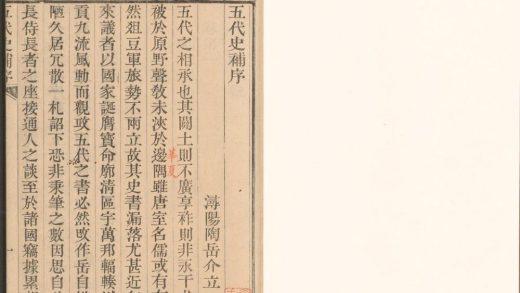 五代史補序
潯陽陶岳介立
五代之相承也其闢土則不廣享祚則非永干
華夏
被於原野聲敎未浹於邊隅雖唐室名儒或有
然俎豆軍旅勢不兩立故其史書漏落尤甚近
來議者以國家誕膺寶命廓清區宇萬邦輻輳
貢九流風動而觀攻五代之書必然改作岳自
陋久居冗散一札詔下恐非秉筆之數因思自
長侍長者之座接通人之談至於諸國竊據累
五代史補序
一